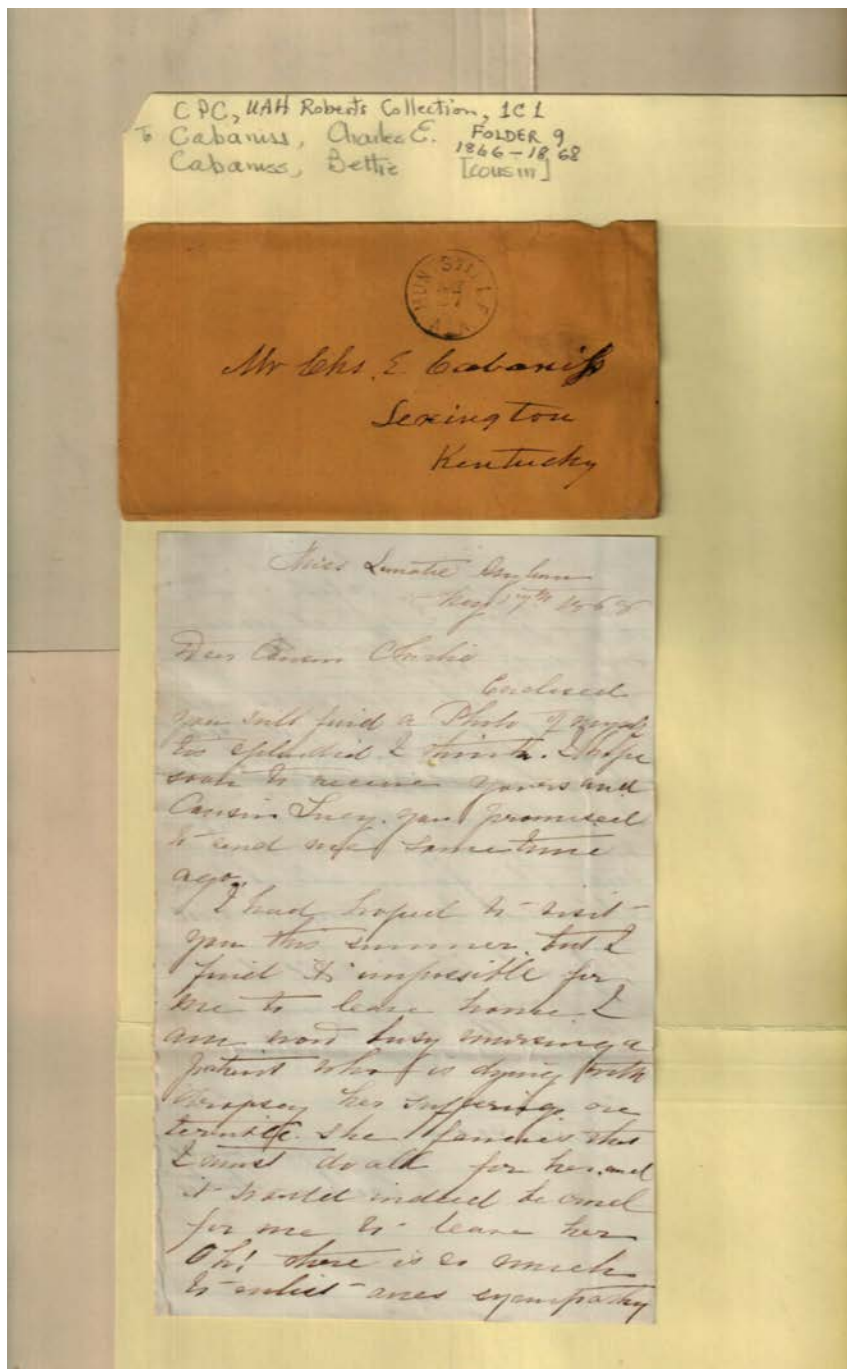 CPC, UAH Roberts Collection, 1C1
To Cabaniss, Charles E. FOLDER 9
1866-1868
Cabaniss, Bettie [cousin]
HUNTSVILLE
Mr Chs. E Cabaniss
Lexington
Kentucky
Miss Lunatic Asylum
17th 1868
Dear Cousin Charlie
Enclosed
you will find a Photo of myself
tis splendid I think. I hope
soon to receive yours and
Cousin Lucy. you promised
to send me some time
ago.
I had hoped to visit
you this summer, but I
find it impossible for
me to leave home I
am now busy nursing a
patient who is dying with
dropsey her suffering are
terrible. she fancies that
I must do all for her, and
it would indeed be cruel
for me to leave her
Oh! there is so much
to enlist ones sympathy